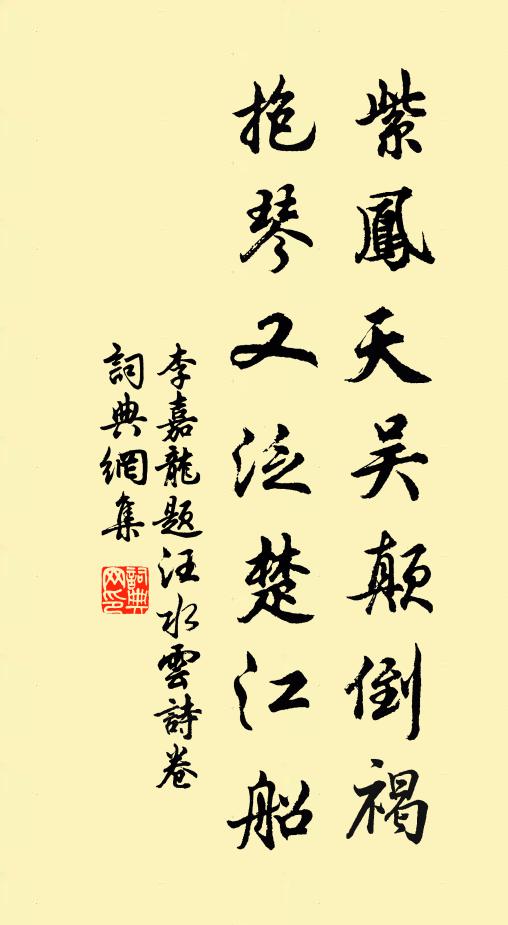 紫鳳天吴顛倒褐
抱琴又泛楚江船
李嘉龍題汪水雲詩卷
詞典網集
詞典
网印